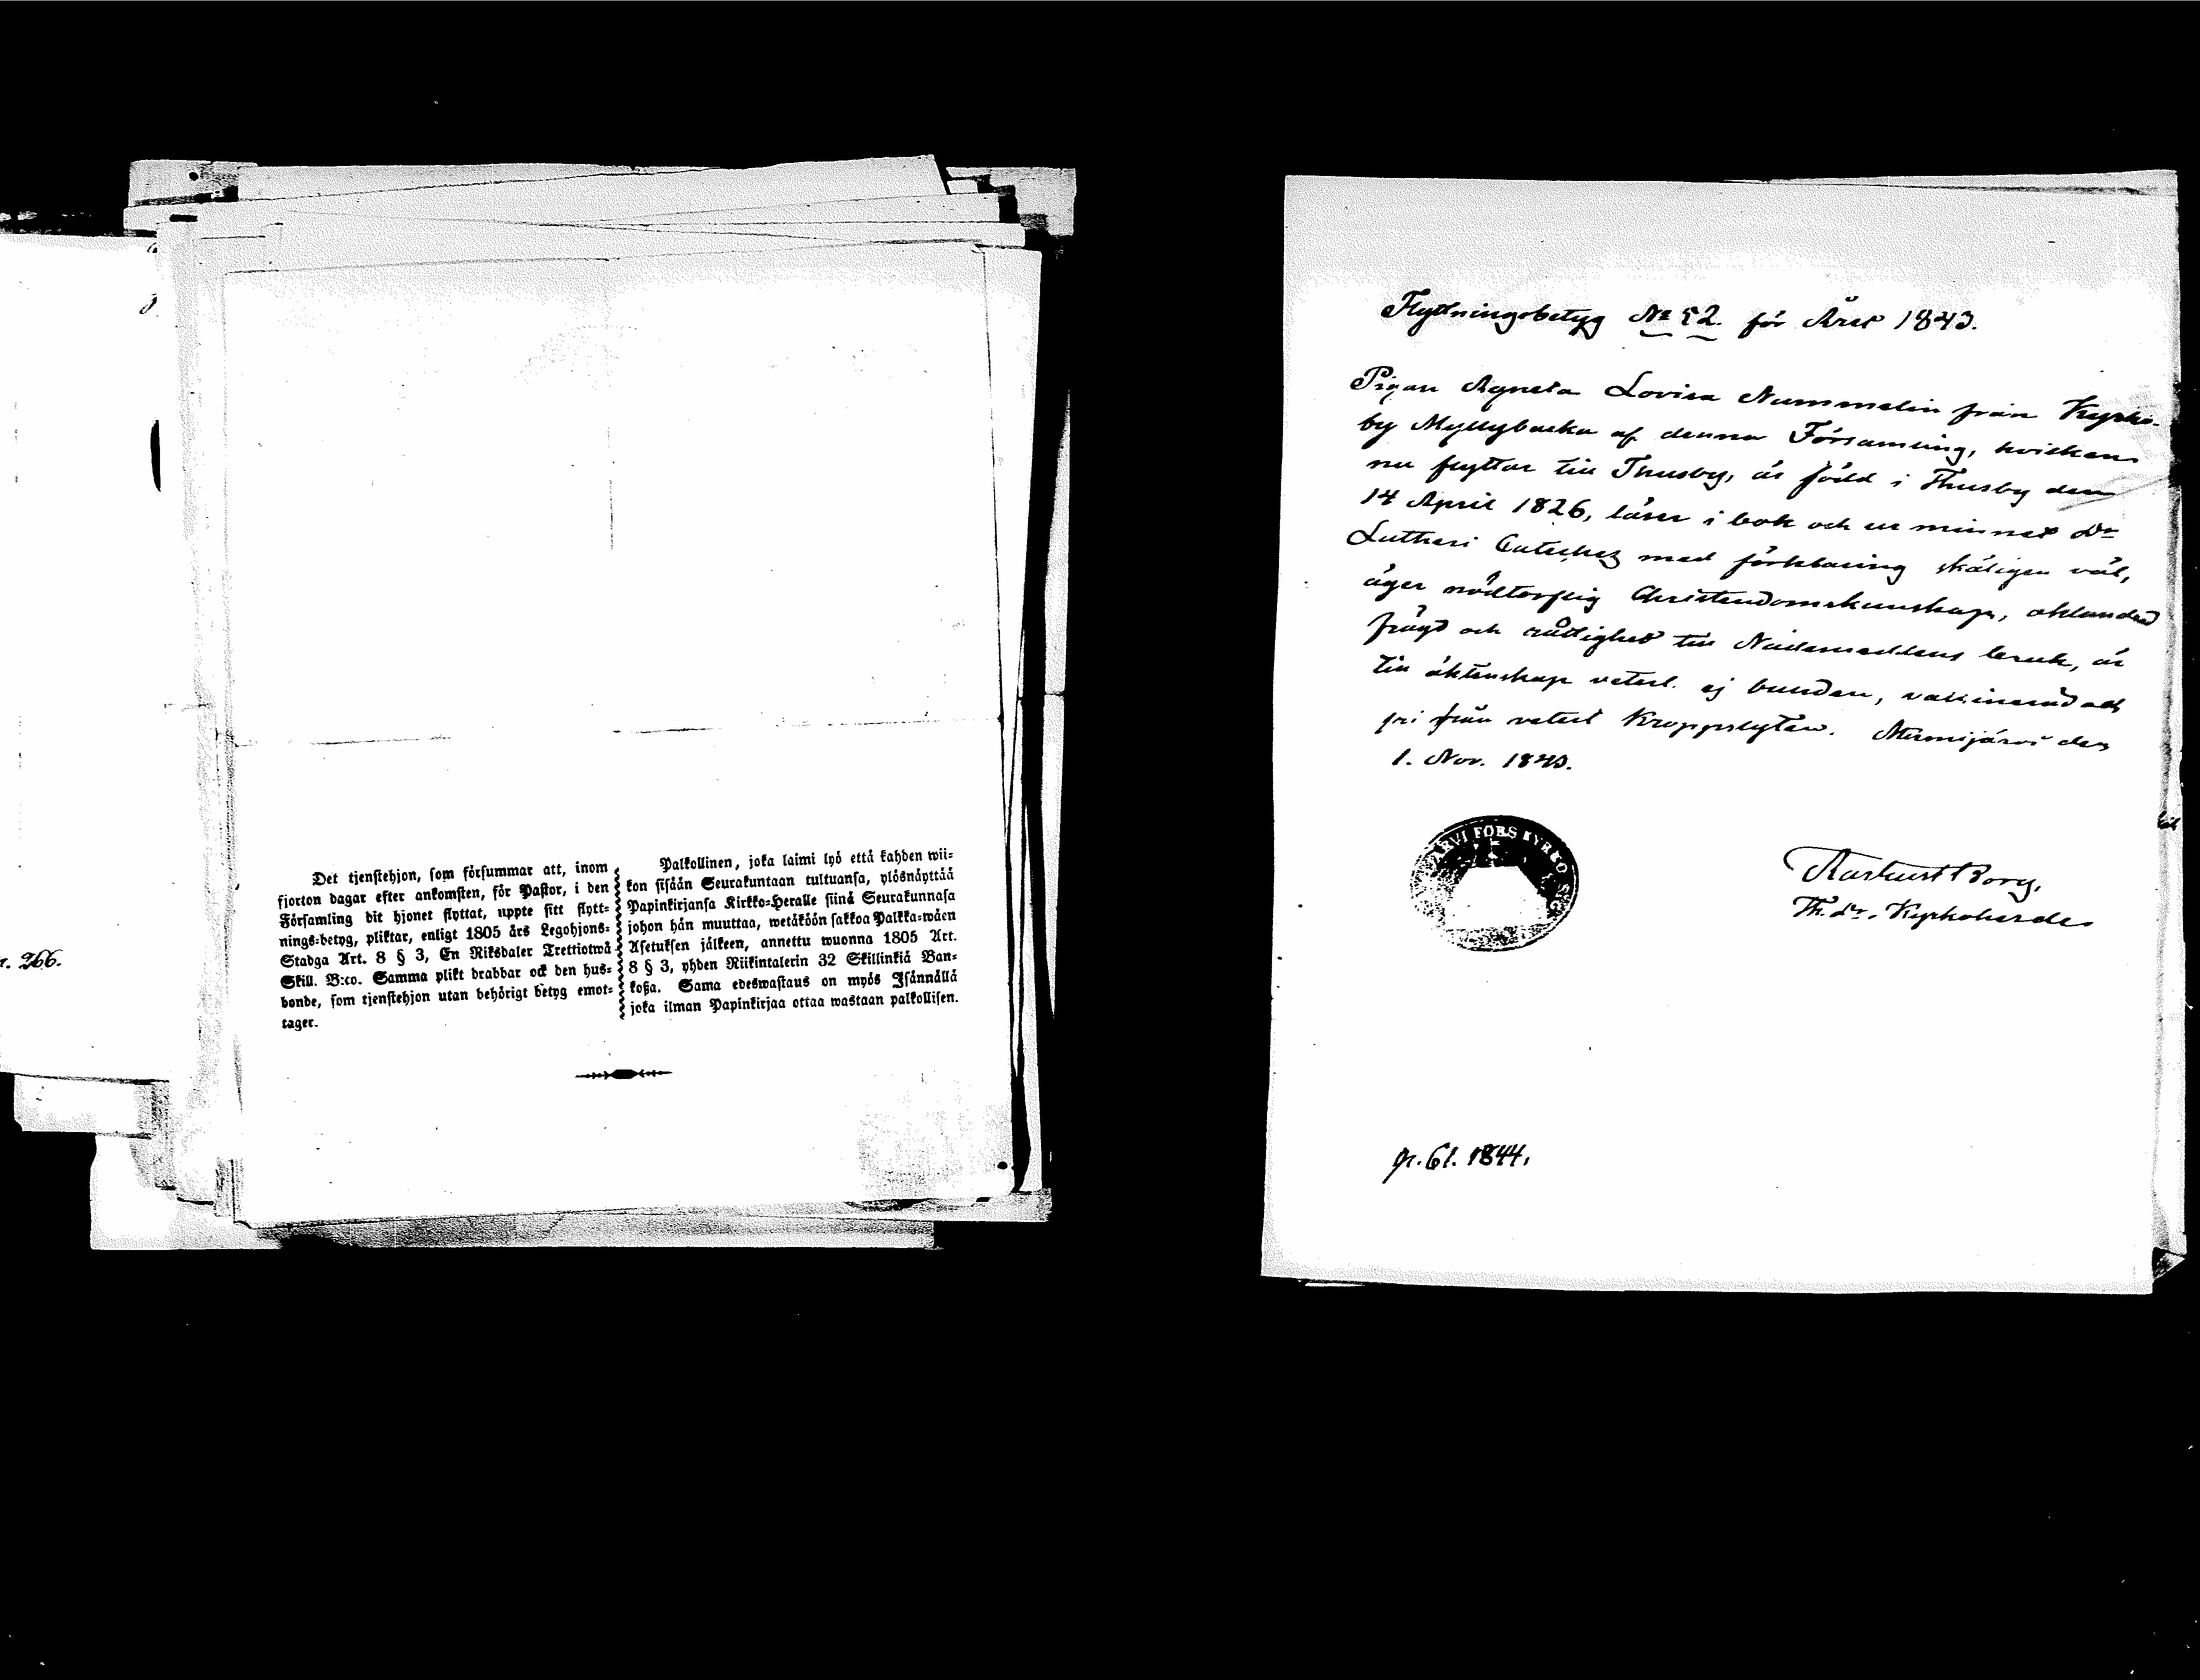 n. 266.
Det tjenstehjon, som försummar att, inom
fjorton dagar efter ankomsten, för Pastor, i den
Församling dit hjonet flyttat, uppte sitt flytt-
nings-betyg, pliktar, enligt 1805 års Legohjons-
Stadga Art. 8 § 3, En Riksdaler Trettiotwå
Skill. B:co. Samma plikt drabbar ock den hus-
bonde, som tjenstehjon utan behörigt betyg emot-
tager.
Palkollinen, joka laimi lyö että kahden wii-
kon sisään Seurakuntaan tultuansa, ylösnäyttää
Papinkirjansa Kirkko-Heralle siinä Seurakunnasa
johon hän muuttaa, wetäköön sakkoa Palkka-wäen
Asetuksen jälkeen, annettu wuonna 1805 Art.
8 § 3, yhden Riikintalerin 32 Skillinkiä Ban-
koßa. Sama edeswastaus on myös Isännällä
joka ilman Papinkirjaa ottaa wastaan palkollisen.
Flyttningsbetyg No 52. för Året 1843.
Pigan Agneta Lovisa Nummelin från Kyrko-
by Myllybacka af denna Församling, hvilken
nu flyttar till Thusby, är född i Thusby den
14 April 1826, läser i bok och ur minnet Dr
Lutheri Catechez med förklaring skäligen väl,
äger nödtorftig Christendomskunskap, oklandrad
frägd och rättighet till Nådemedlens bruk, är
till äktenskap veterl. ej bunden, vaccinerad och
fri från veterl Kroppslyten. Nurmijärvi den
1. Nov. 1843.
JÄRVI FÖRS KYRKO SIG
Borg,
Th. Dr. Kyrkoherde
n. 61. 1844.